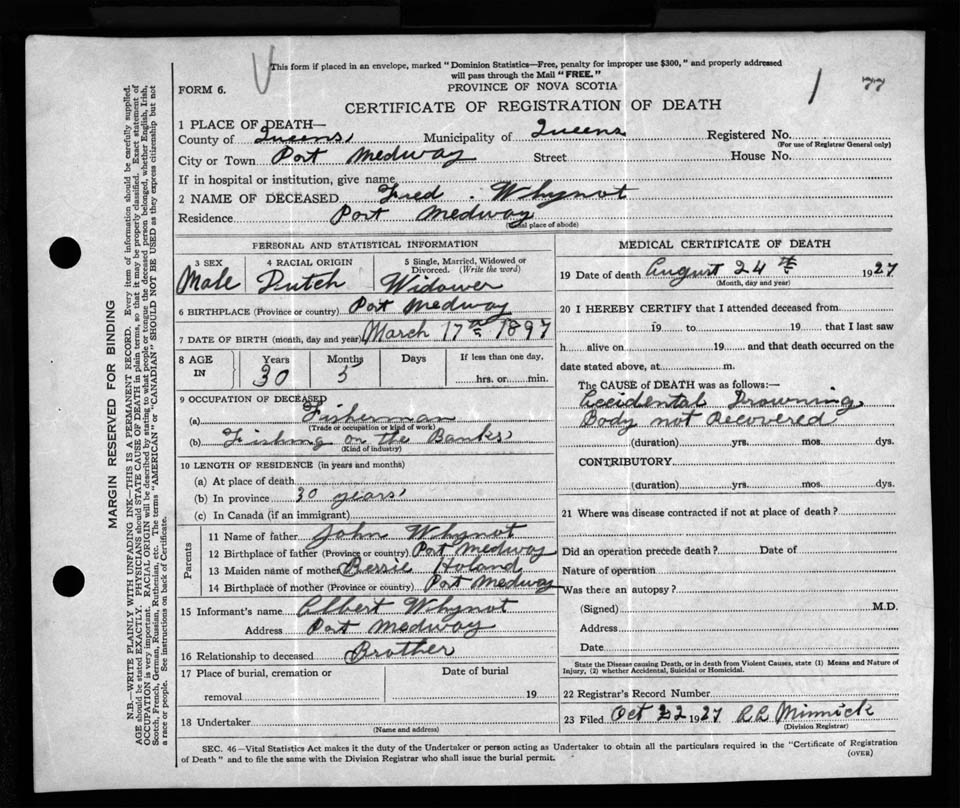 This form if placed in an envelope, marked "Dominion Statistics—Free, penalty for improper use $300," and properly addressed
will pass through the Mail "FREE."
FORM 6.
PROVINCE OF NOVA SCOTIA
1 77
CERTIFICATE OF REGISTRATION OF DEATH
1 PLACE OF DEATH—
County of Queens, Municipality of Queens Registered No.
(For use of Registrar General only)
City or Town Port Medway Street House No.
If in hospital or institution, give name
2 NAME OF DECEASED Fred . Whynot
Residence Port Medway
(Usual place of abode)
PERSONAL AND STATISTICAL INFORMATION
3 SEX 4 RACIAL ORIGIN 5 Single, Married, Widowed or Divorced. (Write the word)
Male Dutch Widower
6 BIRTHPLACE (Province or country) Port Medway
7 DATE OF BIRTH (month, day and year) March 17th 1897
8 AGE IN Years Months Days If less than one day.
30 5 hrs. or min.
9 OCCUPATION OF DECEASED
(a) Fisherman
(Trade or occupation or kind of work)
(b) Fishing on the Banks,
(Kind of industry)
10 LENGTH OF RESIDENCE (in years and months)
(a) At place of death
(b) In province 30 years,
(c) In Canada (if an immigrant)
Parents
11 Name of father John Whynot
12 Birthplace of father (Province or country) Port Medway
13 Maiden name of mother Bessie Holand
14 Birthplace of mother (Province or country) Port Medway
15 Informant's name Albert Whynot
Address Port Medway
16 Relationship to deceased Brother
17 Place of burial, cremation or Date of burial
removal 19
18 Undertaker
(Name and address)
MEDICAL CERTIFICATE OF DEATH
19 Date of death August 24th 1927
(Month, day and year)
20 I HEREBY CERTIFY that I attended deceased from
19 to 19 that I last saw
h alive on 19 and that death occurred on the
date stated above, at m.
The CAUSE of DEATH was as follows:—
Accidental Drowning
Body not Recovered
(duration) yrs. mos. dys.
CONTRIBUTORY
(duration) yrs. mos. dys.
21 Where was disease contracted if not at place of death?
Did an operation precede death? Date of
Nature of operation
Was there an autopsy?
(Signed) M.D.
Address
Date
State the Disease causing Death, or in death from Violent Causes, state (1) Means and Nature of
Injury, (2) whether Accidental, Suicidal or Homicidal.
22 Registrar's Record Number
23 Filed Oct 22 1927 R R Minnick
(Division Registrar)
SEC. 46—Vital Statistics Act makes it the duty of the Undertaker or person acting as Undertaker to obtain all the particulars required in the "Certificate of Registration
of Death" and to file the same with the Division Registrar who shall issue the burial permit. (OVER)
MARGIN RESERVED FOR BINDING
N.B.—WRITE PLAINLY WITH UNFADING INK—THIS IS A PERMANENT RECORD. Every item of information should be carefully supplied.
AGE should be stated EXACTLY. PHYSICIANS should STATE CAUSE OF DEATH in plain terms, so that it may be properly classified. Exact statement of
OCCUPATION is very important. RACIAL ORIGIN will be described by stating to what people or tongue the deceased person belonged, whether English, Irish,
Scotch, French, German, Russian, Ruthenian, etc. The terms "AMERICAN" or "CANADIAN" SHOULD NOT BE USED as they express citizenship but not
a race or people. See instructions on back of Certificate.